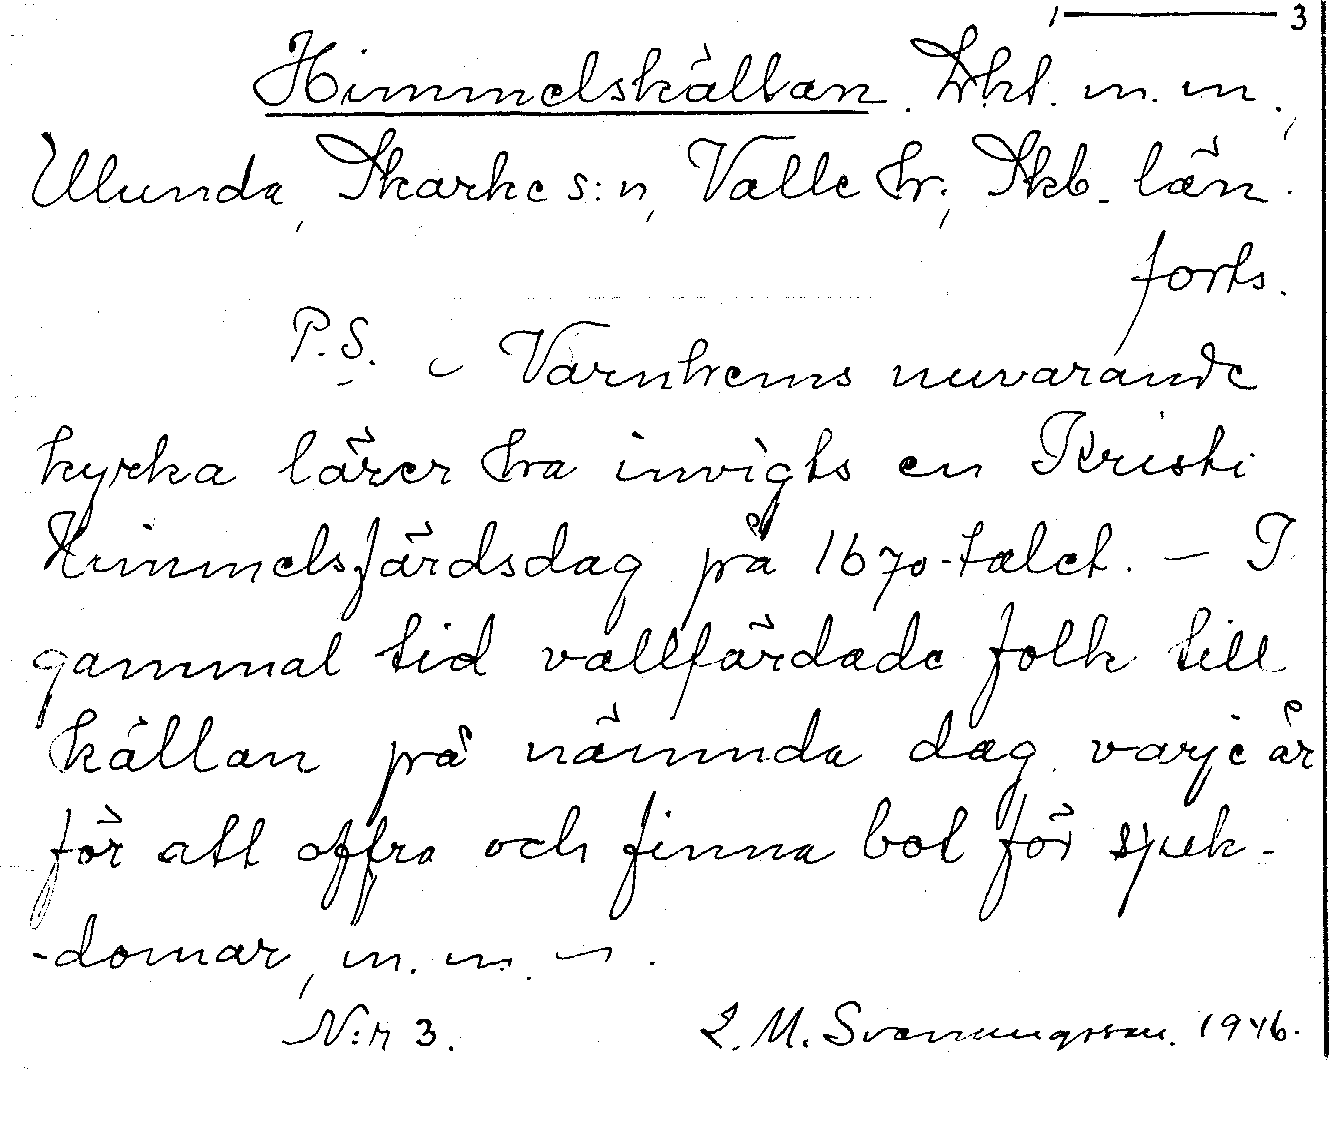 1 — 3
Himmelskällan. Skt. m. m.,
Ulunda, Skarke s:n, Valle hr., Skb. län.
forts.
P.S. – Varnhems nuvarande
kyrka lärer ha invigts en Kristi
Himmelsfärdsdag på 1670-talet. – I
gammal tid vallfärdade folk till
källan på nämnda dag varje år
för att offra och finna bot för sjuk-
-domar, m. m. –.
N:r 3. L. M. Svenungsson. 1946.